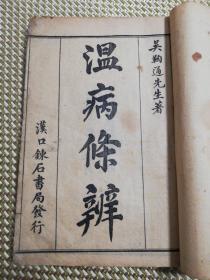 吳鞠通先生著
溫病條辨
漢口鍊石書局發行